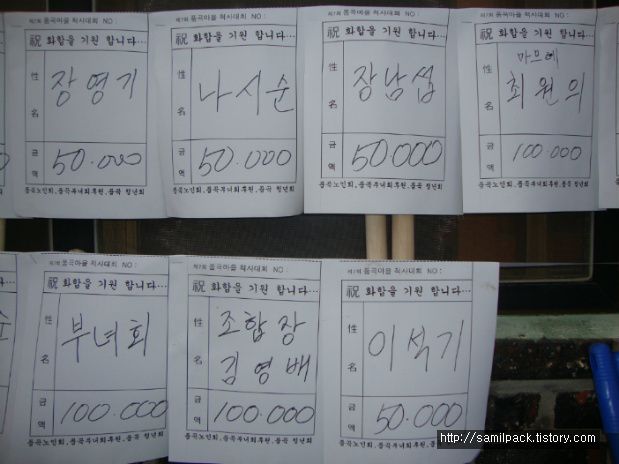 제7회 품곡마을 척사대회 NO :
祝 화합을 기원 합니다...
성명 장영기
금액 50.000
품곡노인회,품곡부녀회후원,품곡 청년회
제7회 품곡마을 척사대회 NO :
祝 화합을 기원 합니다...
성명 나시순
금액 50.000
품곡노인회,품곡부녀회후원,품곡 청년회
제7회 품곡마을 척사대회 NO :
祝 화합을 기원 합니다...
성명 장남섭
금액 50.000
품곡노인회,품곡부녀회후원,품곡 청년회
제7회 품곡마을 척사대회 NO :
祝 화합을 기원 합니다...
마므레
성명 최원의
금액 100.000
품곡노인회,품곡부녀회후원,품곡 청년회
제7회 품곡마을 척사대회 NO :
祝 화합을 기원 합니다...
성명 부녀회
금액 100.000
품곡노인회,품곡부녀회후원,품곡 청년회
제7회 품곡마을 척사대회 NO :
祝 화합을 기원 합니다...
성명 조합장
김영배
금액 100.000
품곡노인회,품곡부녀회후원,품곡 청년회
제7회 품곡마을 척사대회 NO :
祝 화합을 기원 합니다...
성명 이석기
금액 50.000
품곡노인회,품곡부녀회후원,품곡 청년회
http://samilpack.tistory.com